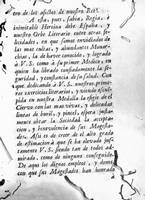 ceo de los afectos de nuestro Rey?
A esta, pues, sabia, Regia, é
inimitable Heroina debe España, y
nuestro Orbe Literario entre otras fe-
licidades, en que somos envidiados de
las mas cultas, y abundantes Monar-
chias, la de haver conocido, y logrado
à V. S. como à su primer Medico, en
quien ha librado confiadamente la Pros-
peridad, y constancia de su salud. Con
que dedicando à V. S. nuestras prime-
ras excursiones literarias, y viendo escul-
pida en nuestra Medalla la efigie de el
Ciervo con las mas vivas, y delicadas
lineas de buril, y pincel, espera justa-
mente ahora la Sociedad la accepta-
cion, y benevolencia de sus Magesta-
des. Assi es de creer de el alto grado
de estimacion à que se ha elevado justi-
ssimamente V. S. siendo tan de todos ad-
mirado, como de ninguno conseguido.
De aqui los dignos empleos, y altos
con que sus Magestades han honrado